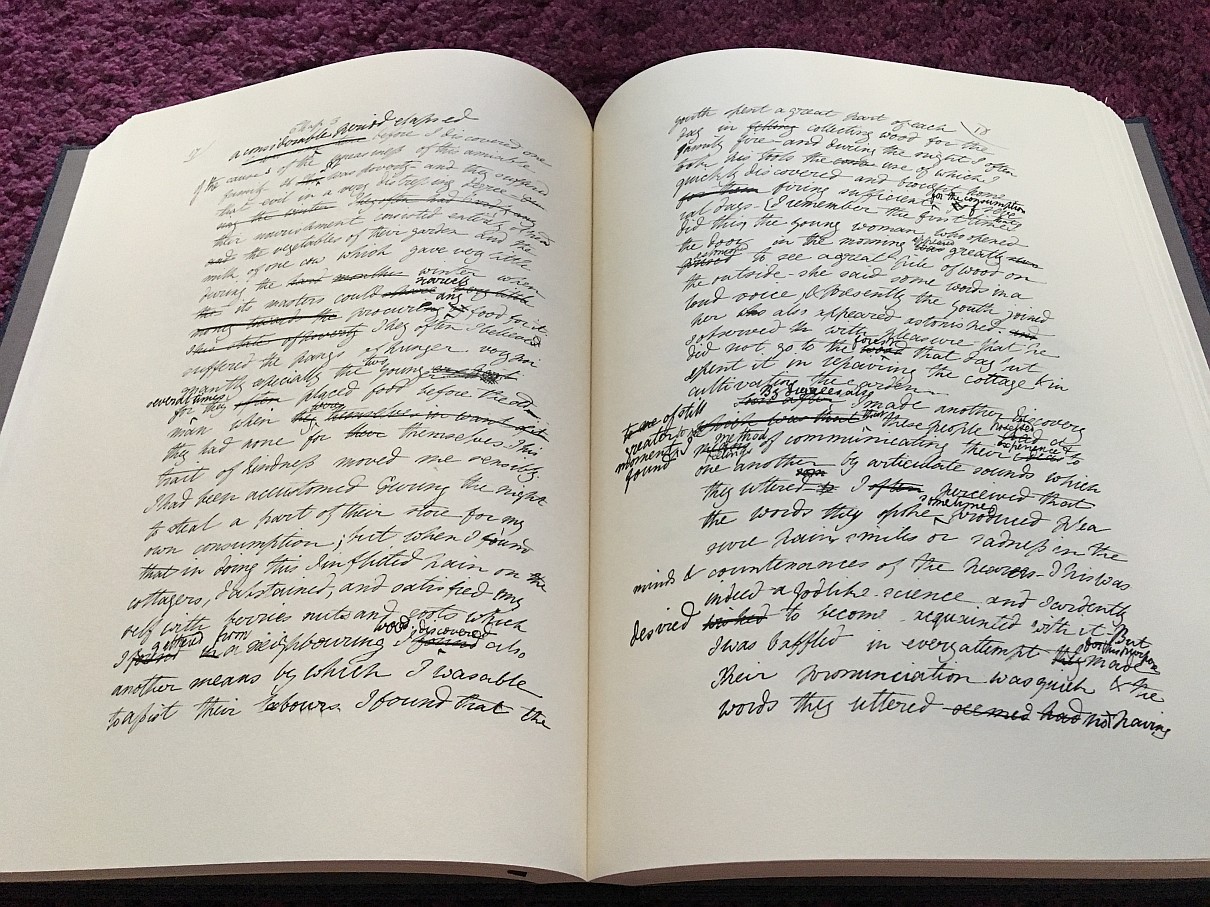 Chap. 3
a considerable period elapsed
before I discovered one
of the causes of the uneasiness of this amiable
family it was poverty and they suffered
that evil in a very distressing degree
their nourishment consisted entirely of
the vegetables of their garden and the
milk of one cow which gave very little
during the winter when
scarcely
its masters could procure
any food for it
They often I believe
suffered the pangs of hunger very poi
two
gnantly especially the young
several times
for they often placed food before the old
man when they
they had none for themselves. This
trait of kindness moved me sensibly
I had been accustomed during the night
to steal a part of their store for my
own consumption; but when I found
that in doing this I inflicted pain on the
cottagers, I abstained, and satisfied my
self with berries nuts and roots which
gathered from wood. discovered
I a neighbouring I found also
another means by which I was able
to assist their labours. I found that the
youth spent a great part of each
18
day in collecting wood for the
family fire and during the night I often
took his tools the use of which I
quickly discovered and brought home
firing sufficient
for the consumption
of
val days. I remember the first time
did this the young woman, who opened
the door in the morning
appeared
greatly
astonished
to see a great pile of wood on
the outside. she said some words in a
loud voice & presently the youth joined
her also appeared astonished. and
I observed with pleasure that he
did not go to the
forest
wood that day but
spent it in repairing the cottage & in
cultivating the garden
By degrees also
I made another discovery
to me of still
greater
moment I
found
which was that
that these people
possessed
had a
method
means of communicating their
experience &
feelings
to
one another by articulate sounds which
they uttered I often perceived that
the words they spoke
sometimes
produced plea
sure pain smiles or sadness in the
minds & countenances of the hearers. This was
indeed a godlike science and I ardently
desired wished to become acquainted with it. But
I was baffled in every attempt
for this purpose
I made
Their pronunciation was quick & the
words they uttered seemed had not having